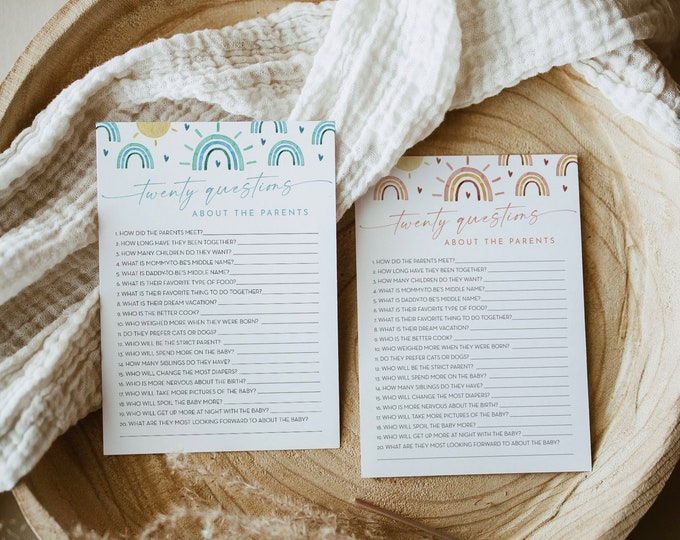 twenty questions
ABOUT THE PARENTS
1. HOW DID THE PARENTS MEET?
2. HOW LONG HAVE THEY BEEN TOGETHER?
3. HOW MANY CHILDREN DO THEY WANT?
4. WHAT IS MOMMY-TO-BE'S MIDDLE NAME?
5. WHAT IS DADDY-TO-BE'S MIDDLE NAME?
6. WHAT IS THEIR FAVORITE TYPE OF FOOD?
7. WHAT IS THEIR FAVORITE THING TO DO TOGETHER?
8. WHAT IS THEIR DREAM VACATION?
9. WHO IS THE BETTER COOK?
10. WHO WEIGHED MORE WHEN THEY WERE BORN?
11. DO THEY PREFER CATS OR DOGS?
12. WHO WILL BE THE STRICT PARENT?
13. WHO WILL SPEND MORE ON THE BABY?
14. HOW MANY SIBLINGS DO THEY HAVE?
15. WHO WILL CHANGE THE MOST DIAPERS?
16. WHO IS MORE NERVOUS ABOUT THE BIRTH?
17. WHO WILL TAKE MORE PICTURES OF THE BABY?
18. WHO WILL SPOIL THE BABY MORE?
19. WHO WILL GET UP MORE AT NIGHT WITH THE BABY?
20. WHAT ARE THEY MOST LOOKING FORWARD TO ABOUT THE BABY?
twenty questions
ABOUT THE PARENTS
1. HOW DID THE PARENTS MEET?
2. HOW LONG HAVE THEY BEEN TOGETHER?
3. HOW MANY CHILDREN DO THEY WANT?
4. WHAT IS MOMMY-TO-BE'S MIDDLE NAME?
5. WHAT IS DADDY-TO-BE'S MIDDLE NAME?
6. WHAT IS THEIR FAVORITE TYPE OF FOOD?
7. WHAT IS THEIR FAVORITE THING TO DO TOGETHER?
8. WHAT IS THEIR DREAM VACATION?
9. WHO IS THE BETTER COOK?
10. WHO WEIGHED MORE WHEN THEY WERE BORN?
11. DO THEY PREFER CATS OR DOGS?
12. WHO WILL BE THE STRICT PARENT?
13. WHO WILL SPEND MORE ON THE BABY?
14. HOW MANY SIBLINGS DO THEY HAVE?
15. WHO WILL CHANGE THE MOST DIAPERS?
16. WHO IS MORE NERVOUS ABOUT THE BIRTH?
17. WHO WILL TAKE MORE PICTURES OF THE BABY?
18. WHO WILL SPOIL THE BABY MORE?
19. WHO WILL GET UP MORE AT NIGHT WITH THE BABY?
20. WHAT ARE THEY MOST LOOKING FORWARD TO ABOUT THE BABY?